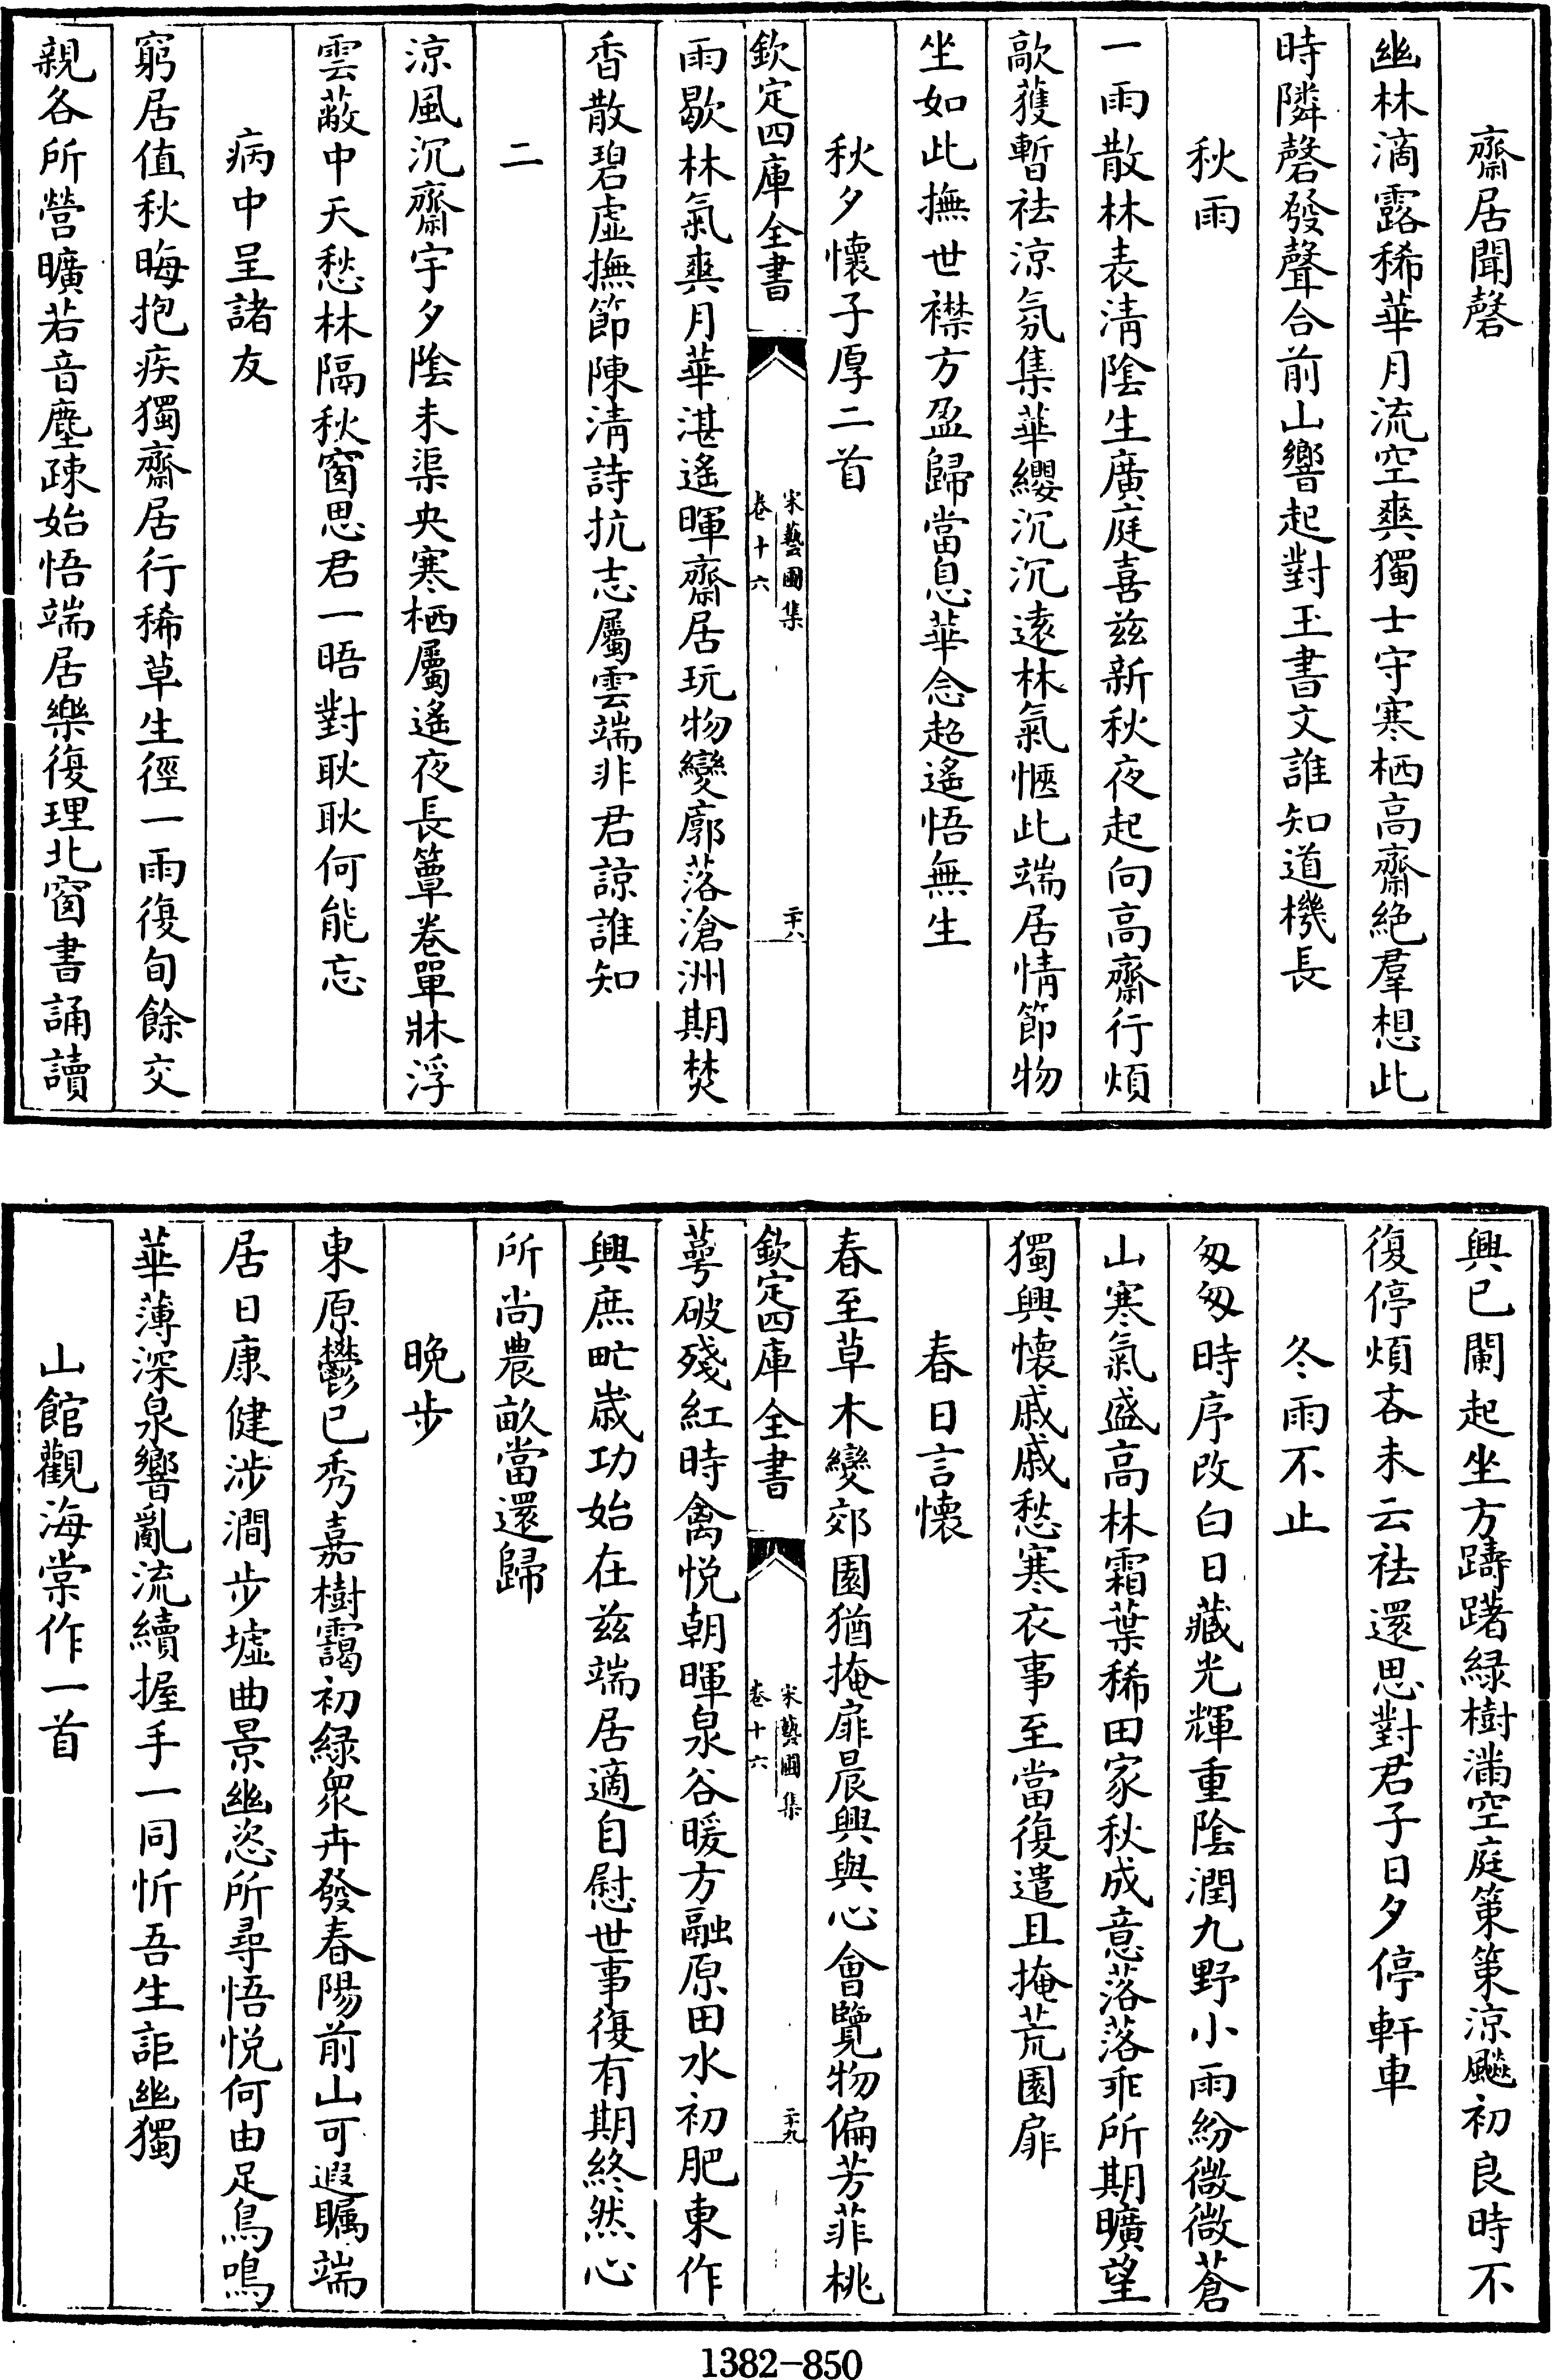 齋居聞磬
幽林滴露稀華月流空爽獨士守寒栖高齋絶羣想此
時隣磬發聲合前山響起對玉書文誰知道機長
秋雨
一雨散林表清陰生廣庭喜兹新秋夜起向高齋行煩
歊獲暫祛涼氛集華纓沉沉遠林氣愜此端居情節物
坐如此撫世襟方盈歸當息華念超遙悟無生
秋夕懷子厚二首
欽定四庫全書
宋藝圃集
卷十六
二十八
雨歇林氣爽月華湛遙暉齋居玩物變廓落滄洲期焚
香散碧虛撫節陳清詩抗志屬雲端非君諒誰知
二
涼風沉齋宇夕陰未渠央寒栖屬遙夜長簟卷單牀浮
雲蔽中天愁林隔秋窗思君一晤對耿耿何能忘
病中呈諸友
窮居值秋晦抱疾獨齋居行稀草生徑一雨復旬餘交
親各所營曠若音塵疎始悟端居樂復理北窗書誦讀
興已闌起坐方躊躇緑樹滿空庭策策涼飈初良時不
復停煩吝未云祛還思對君子日夕停軒車
冬雨不止
匆匆時序改白日藏光輝重陰潤九野小雨紛微微蒼
山寒氣盛高林霜葉稀田家秋成意落落乖所期曠望
獨興懷戚戚愁寒衣事至當復遣且掩荒園扉
春日言懷
春至草木變郊園猶掩扉晨興與心會覽物偏芳菲桃
欽定四庫全書
宋藝圃集
卷十六
二十九
萼破殘紅時禽悅朝暉泉谷暖方融原田水初肥東作
興庶甿歲功始在兹端居適自慰世事復有期終然心
所尚農畝當還歸
晚步
東原鬱已秀嘉樹靄初緑衆卉發春陽前山可遐矚端
居日康健涉澗步墟曲景幽恣所尋悟悅何由足鳥鳴
華薄深泉響亂流續握手一同忻吾生詎幽獨
山館觀海棠作一首
1382-850